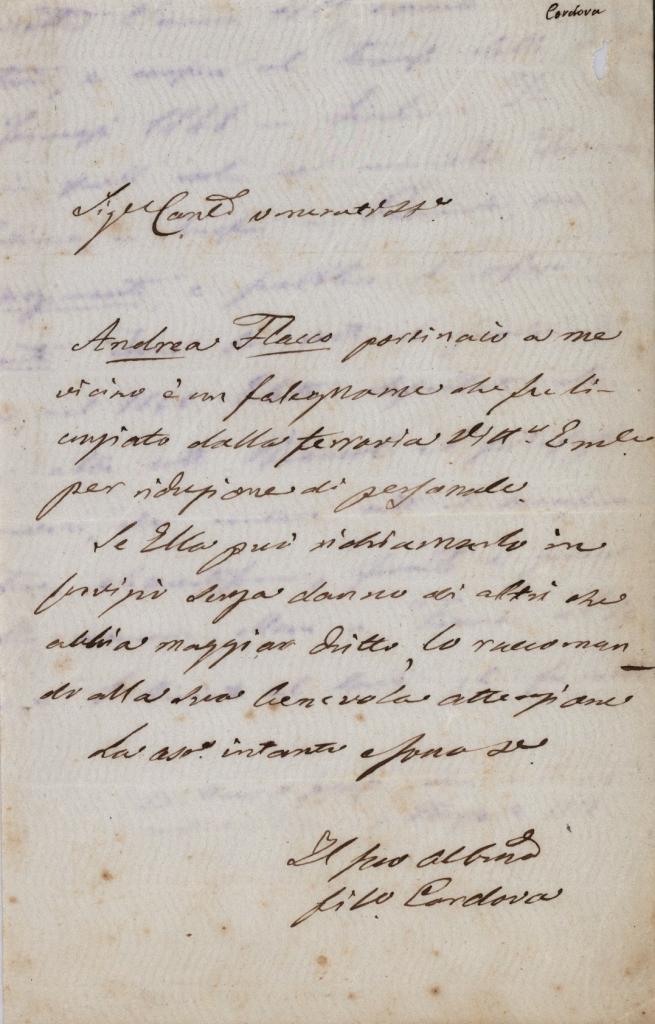 Cordova
Sig.re Com.e veneratiss.e
Andrea Flacco portinaio a me
vicino è un falegname che fu li-
cenziato dalla ferrovia Vitt.o Em.le
per riduzione di personale.
Se Ella può richiamarlo in
servizio senza danno di altri che
abbia maggior dritto, lo raccoman-
do alla sua benevola attenzione
La oss.o intanto e sono
Il suo
Cordova